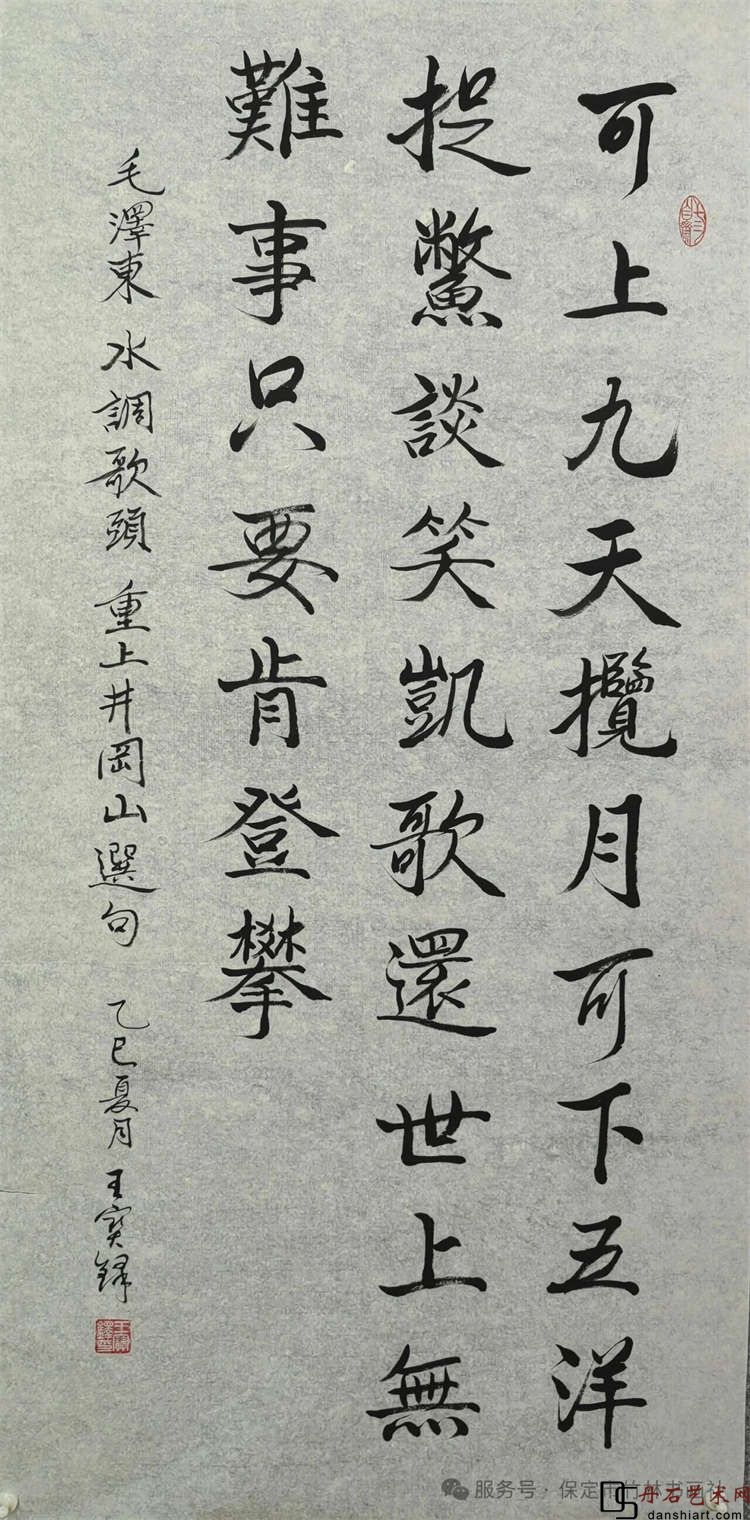 可上九天攬月可下五洋
捉鱉談笑凱歌還世上無
難事只要肯登攀
毛澤東 水調歌頭 重上井岡山選句 乙巳夏月 王
服务号·保定市竹林书画社
丹石艺术网
danshiart.com